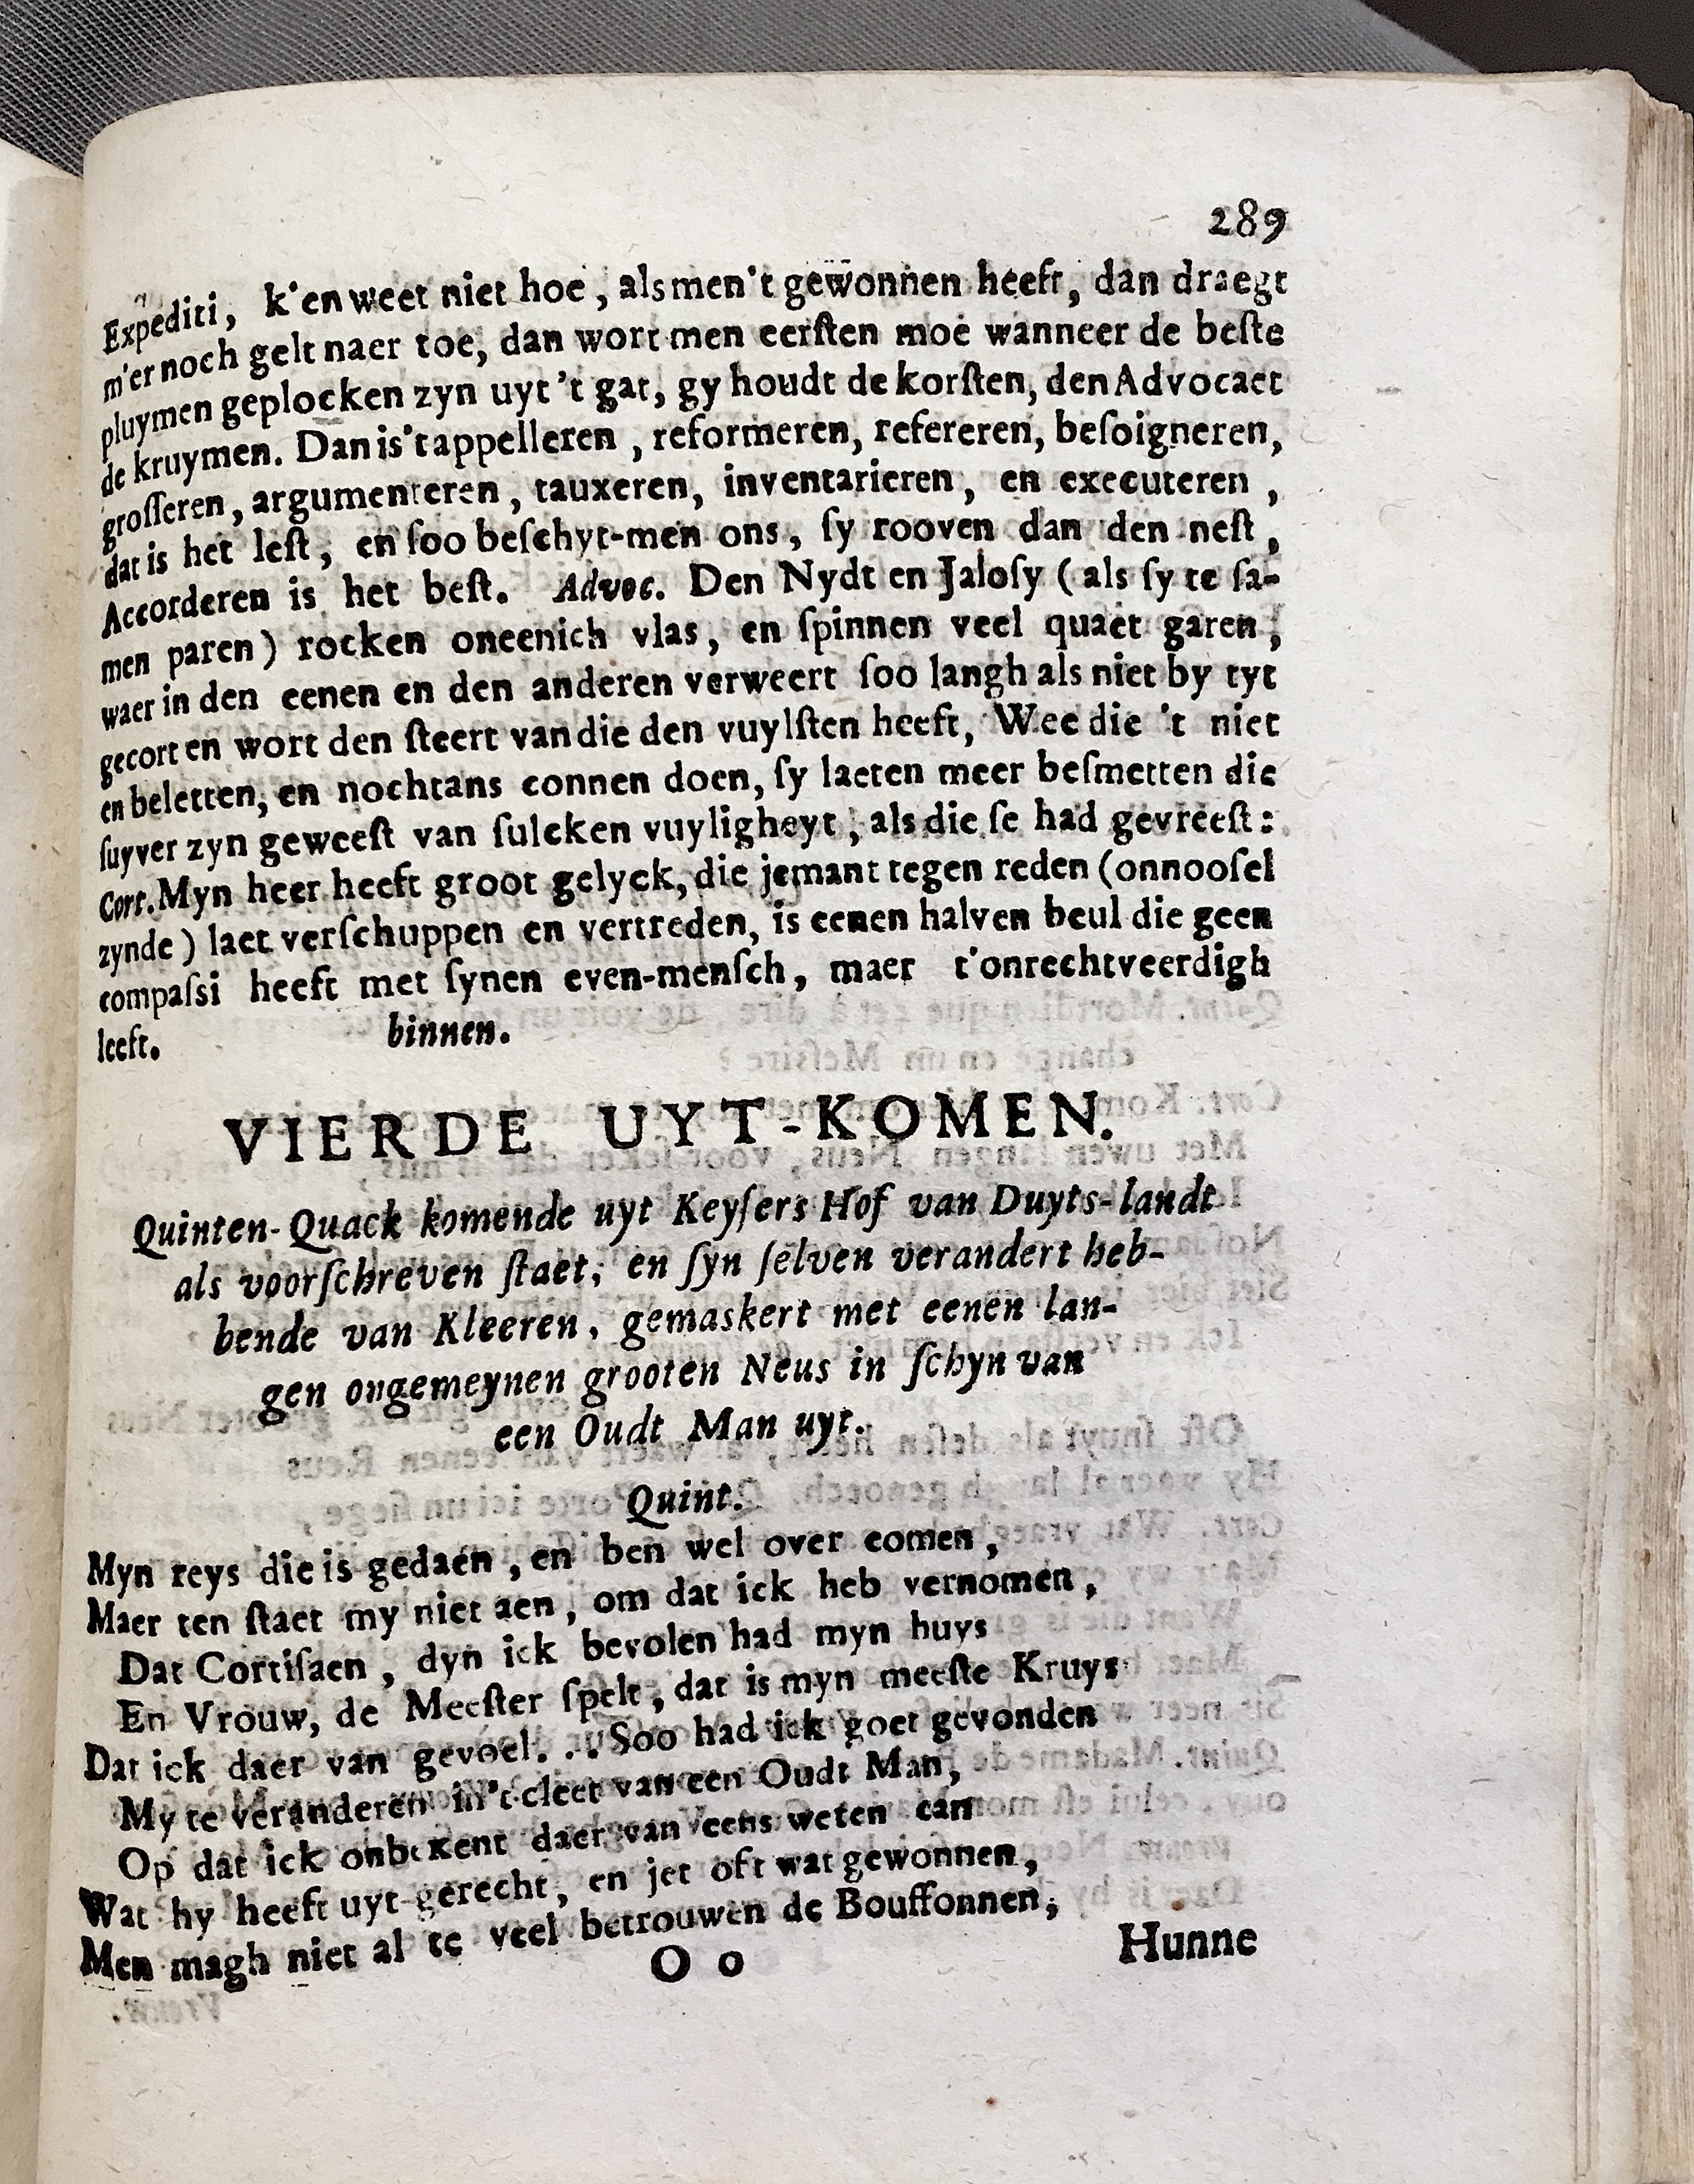 289
Expediti, k'en weet niet hoe, als men't gewonnen heeft, dan draegt
m'er noch gelt naer toe, dan wort men eerſten moe wanneer de beſte
pluymen geplocken zyn uyt 't gat, gy houdt de korſten, den Advocaet
de kruymen. Dan is't appelleren, reformeren, refereren, beſoigneren,
groſſeren, argumenteren, tauxeren, inventarieren, en executeren,
dat is het leſt, en ſoo beſchyt-men ons, ſy rooven dan den neſt,
Accorderen is het beſt. Advoc. Den Nydt en Jaloſy (als ſy te ſa-
men paren) rocken oneenich vlas, en ſpinnen veel quaet garen,
waer in den eenen en den anderen verweert ſoo langh als niet by tyt
gecort en wort den ſteert van die den vuylſten heeft, Wee die 't niet
en beletten, en nochtans connen doen, ſy laeten meer beſmetten die
ſuyver zyn geweeſt van ſulcken vuyligheyt, als die ſe had gevreeſt:
Cort. Myn heer heeft groot gelyck, die jemant tegen reden (onnooſel
zynde) laet verſchuppen en vertreden, is eenen halven beul die geen
compaſsi heeft met ſynen even-menſch, maer t'onrechtveerdigh
leeft. binnen.
VIERDE UYT-KOMEN.
Quinten-Quack komende uyt Keyſers Hof van Duyts-landt
als voorſchreven ſtaet, en ſyn ſelven verandert heb-
bende van Kleeren, gemaskert met eenen lan-
gen ongemeynen grooten Neus in ſchyn van
een Oudt Man uyt.
Quint.
Myn reys die is gedaen, en ben wel over comen,
Maer ten ſtaet my niet aen, om dat ick heb vernomen,
Dat Cortiſaen, dyn ick bevolen had myn huys
En Vrouw, de Meeſter ſpelt, dat is myn meeſte Kruys
Dat ick daer van gevoel... Soo had ick goet gevonden
My te veranderen in't cleet van een Oudt Man,
Op dat ick onbekent daer van eens weten can
Wat hy heeft uyt-gerecht, en jet oft wat gewonnen,
Men magh niet al te veel betrouwen de Bouffonnen,
O o Hunne